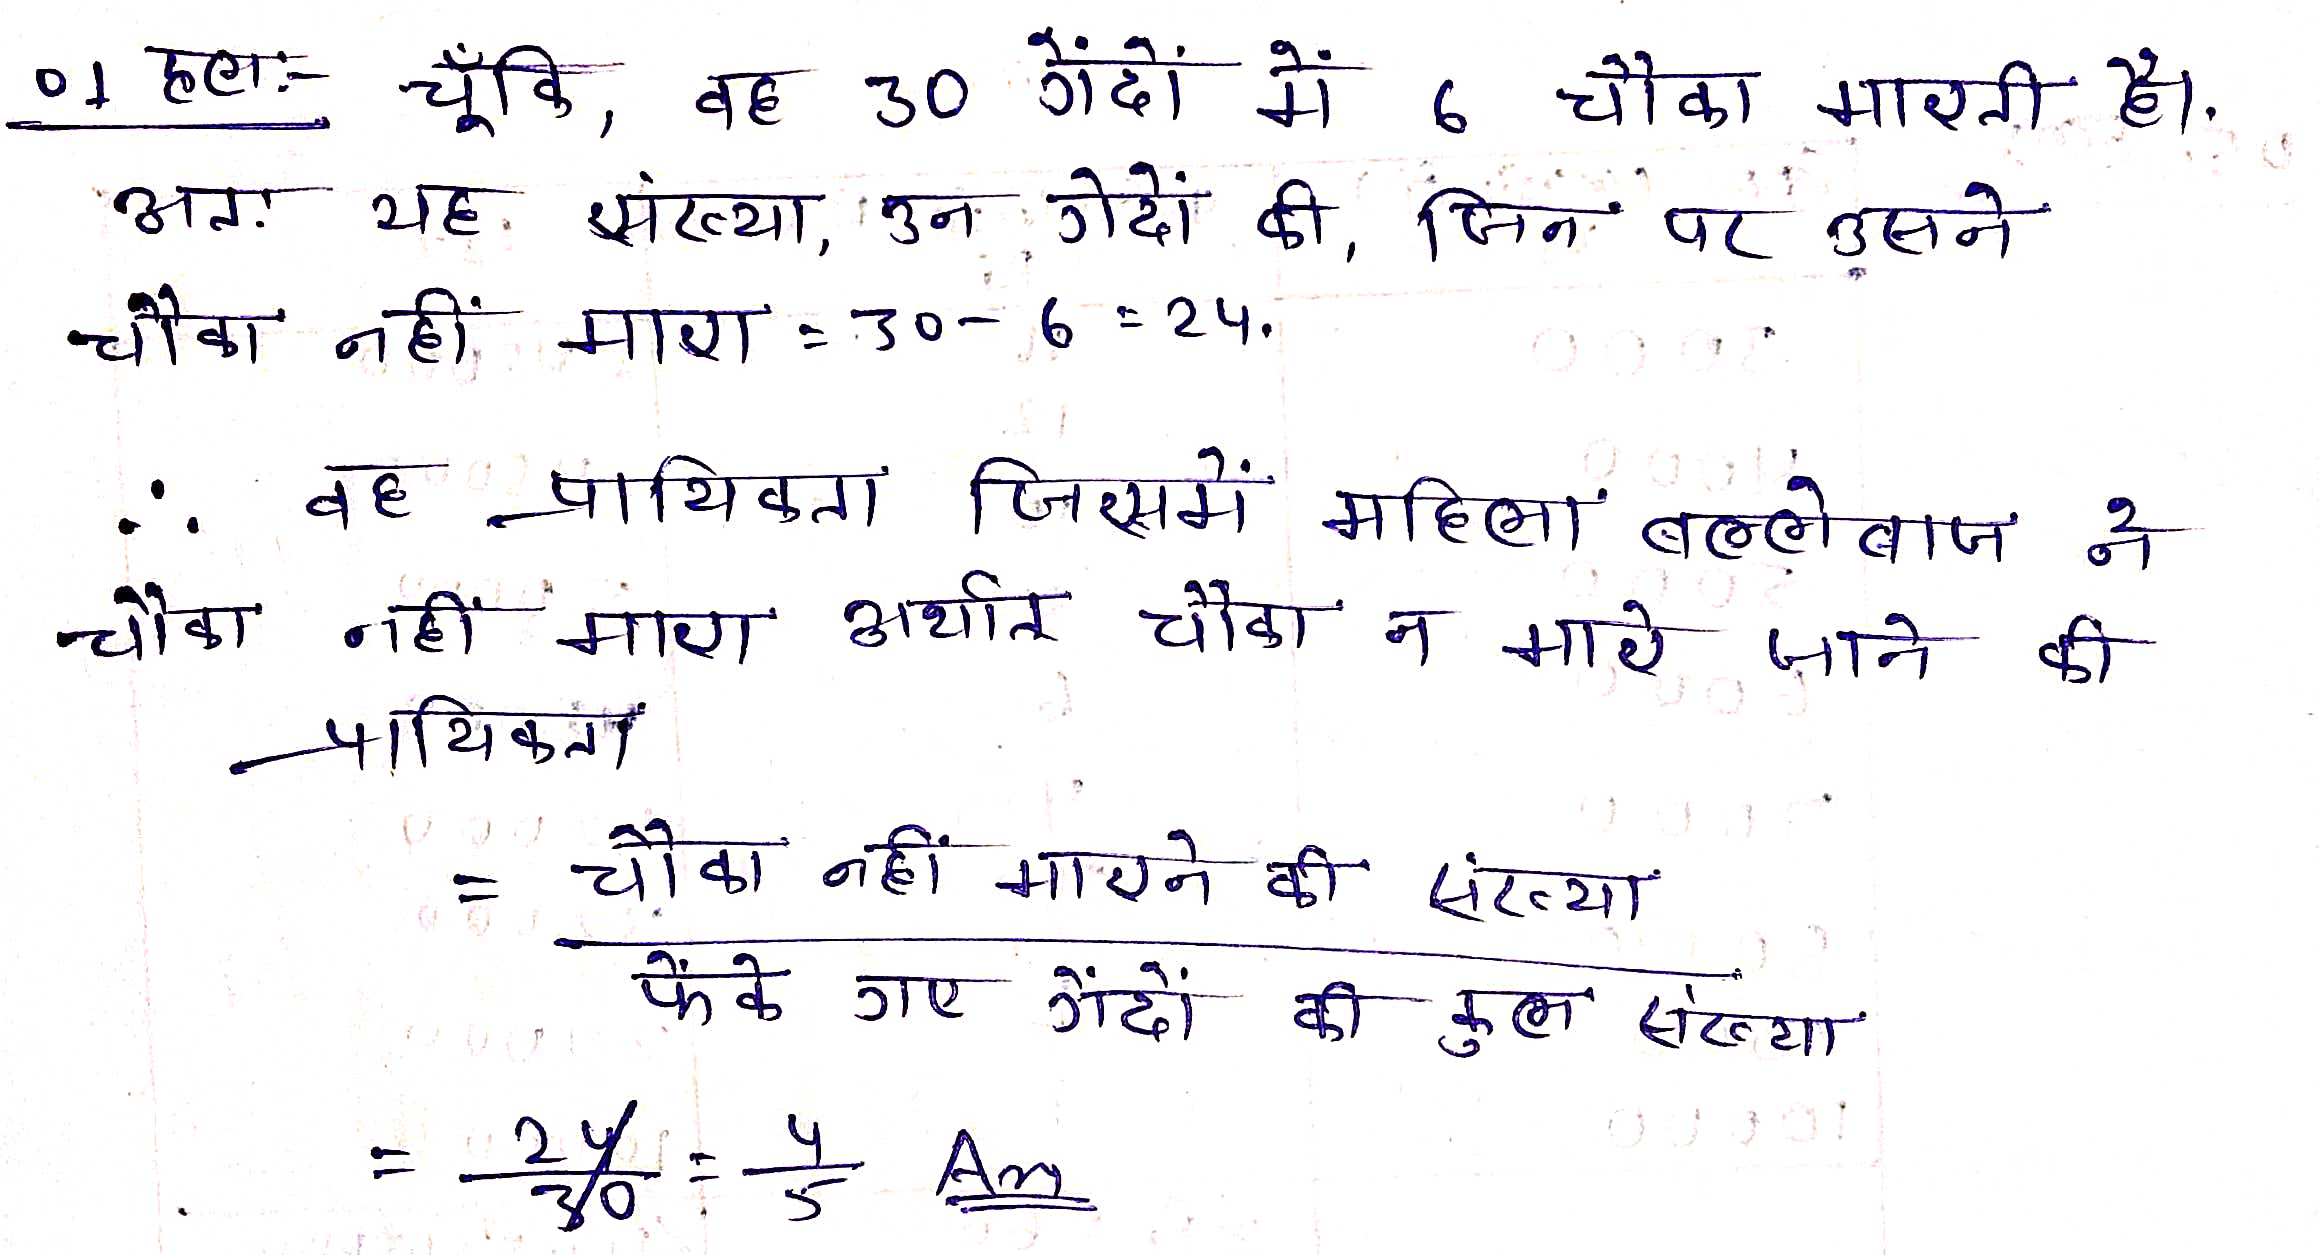 01 हल:- चूँकि, वह 30 गेंदों में 6 चौका मारती है।
अतः यह संख्या, उन गेदों की, जिन पर उसने
चौका नहीं मारा = 30 - 6 = 24.
∴ वह प्रायिकता जिसमें महिला बल्लेबाज ने
चौका नहीं मारा अर्थात चौका न मारे जाने की
प्रायिकता
= चौका नहीं मारने की संख्या
फेंके गए गेंदों की कुल संख्या
= 24/30 = 4/5 Ans